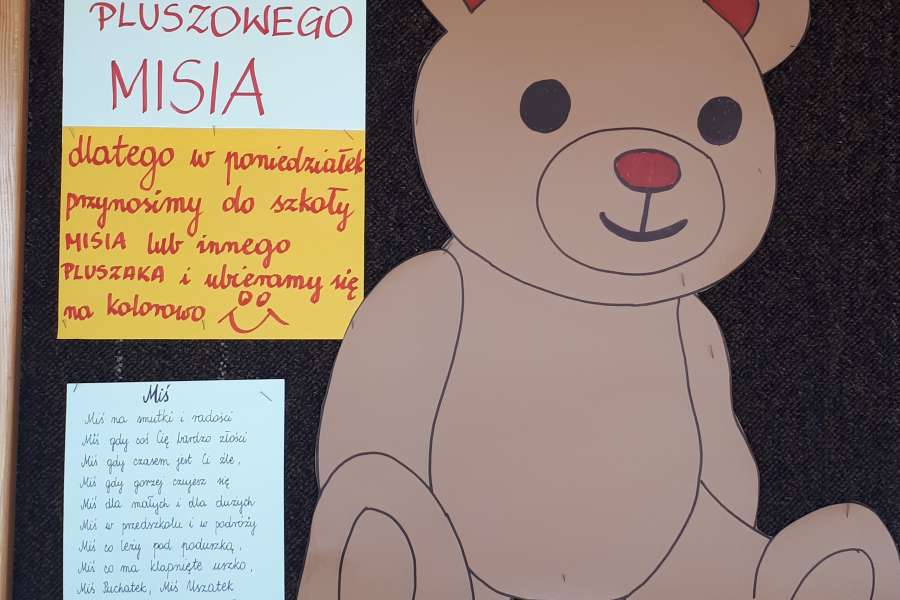 PLUSZOWEGO
MISIA
dlatego w poniedziałek
przynosimy do szkoły
MISIA lub innego
PLUSZAKA i ubieramy się
na kolorowo
Miś
Miś na smutki i radości
Miś gdy coś Cię bardzo złości
Miś gdy czasem jest Ci źle,
Miś gdy gorzej czujesz się
Miś dla małych i dla dużych
Miś w przedszkolu i w podróży
Miś co leży pod poduszką,
Miś co ma klapnięte uszko,
Miś Puchatek, Miś Uszatek